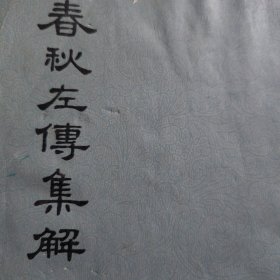 春秋左傳集解